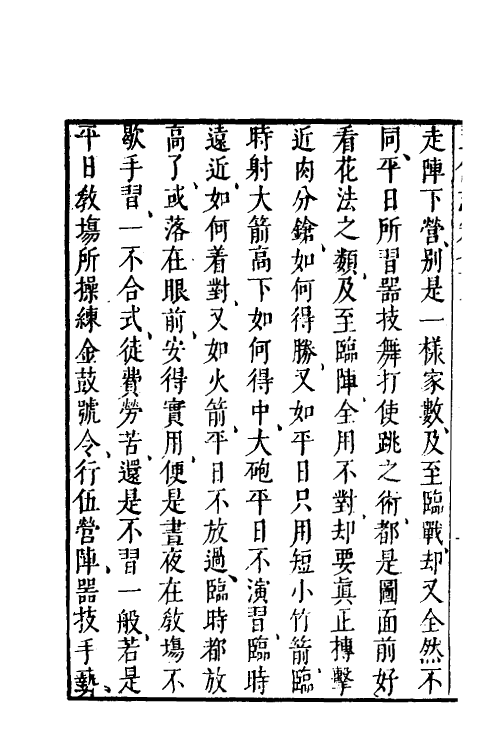 走陣下營、别是一樣家數、及至臨戰、却又全然不
同、平日所習器技舞打使跳之術、都是圖面前好
看花法之類、及至臨陣、全用不對、却要真正摶擊
近肉分鎗、如何得勝、又如平日只用短小竹箭、臨
時射大箭高下如何得中、大砲平日不演習、臨時
遠近、如何着對、又如火箭、平日不放過、臨時都放
高了、或落在眼前、安得實用、便是晝夜在教塲不
歇手習、一不合式、徒費勞苦、還是不習一般、若是
平日教塲所操練金鼓號令、行伍營陣、器技手勢、